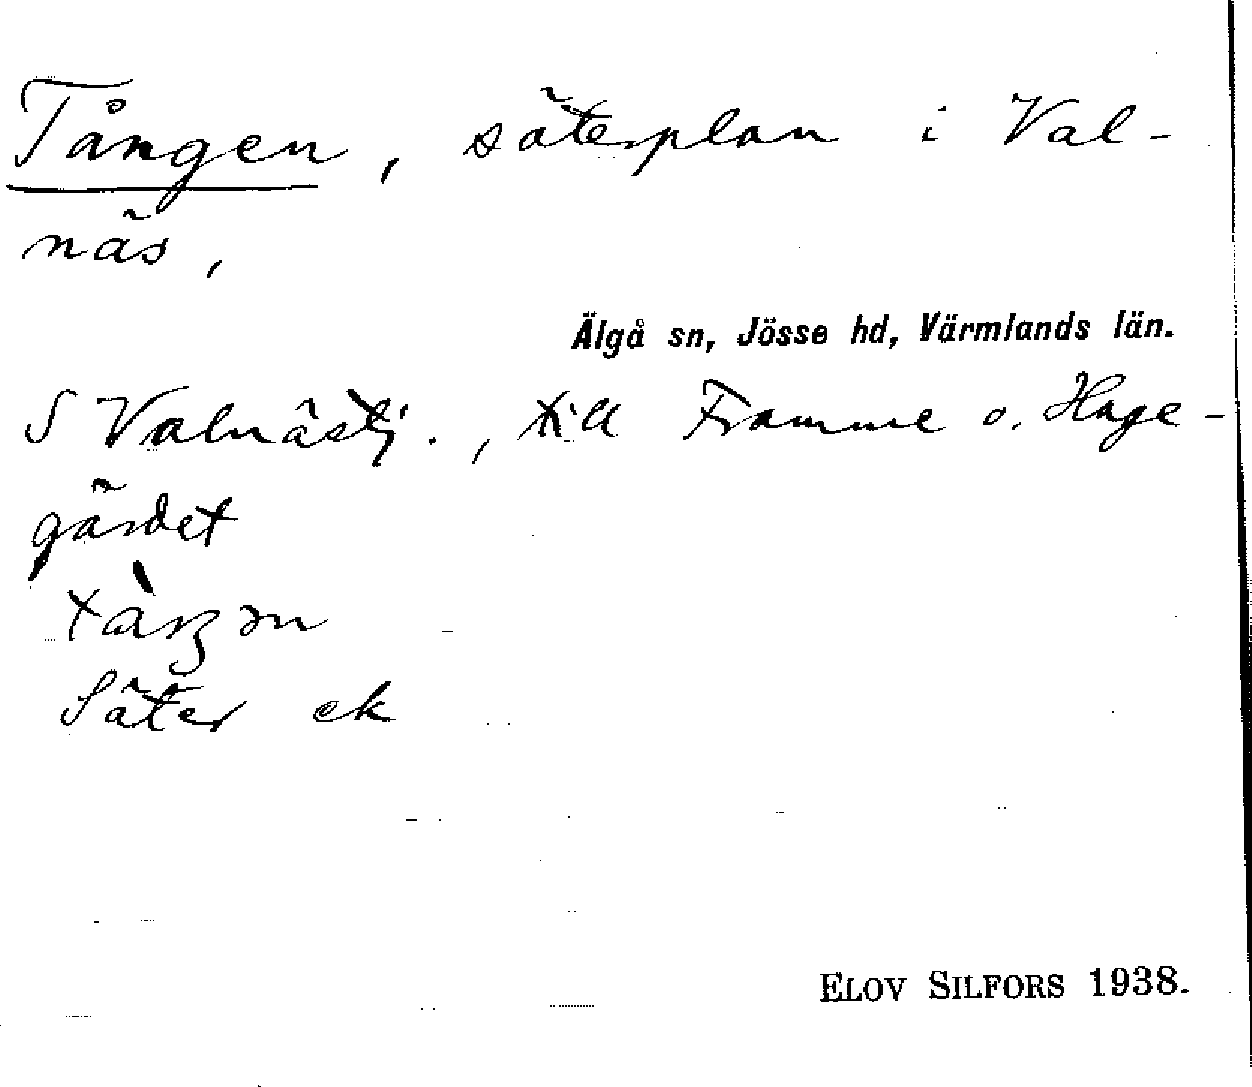 Tången, säterplan i Val-
näs,
Älgå sn, Jösse hd, Värmlands län.
S Valnästj., till Framme o. Hage-
gärdet
tàŋən
Säter ek
ELOV SILFORS 1938.